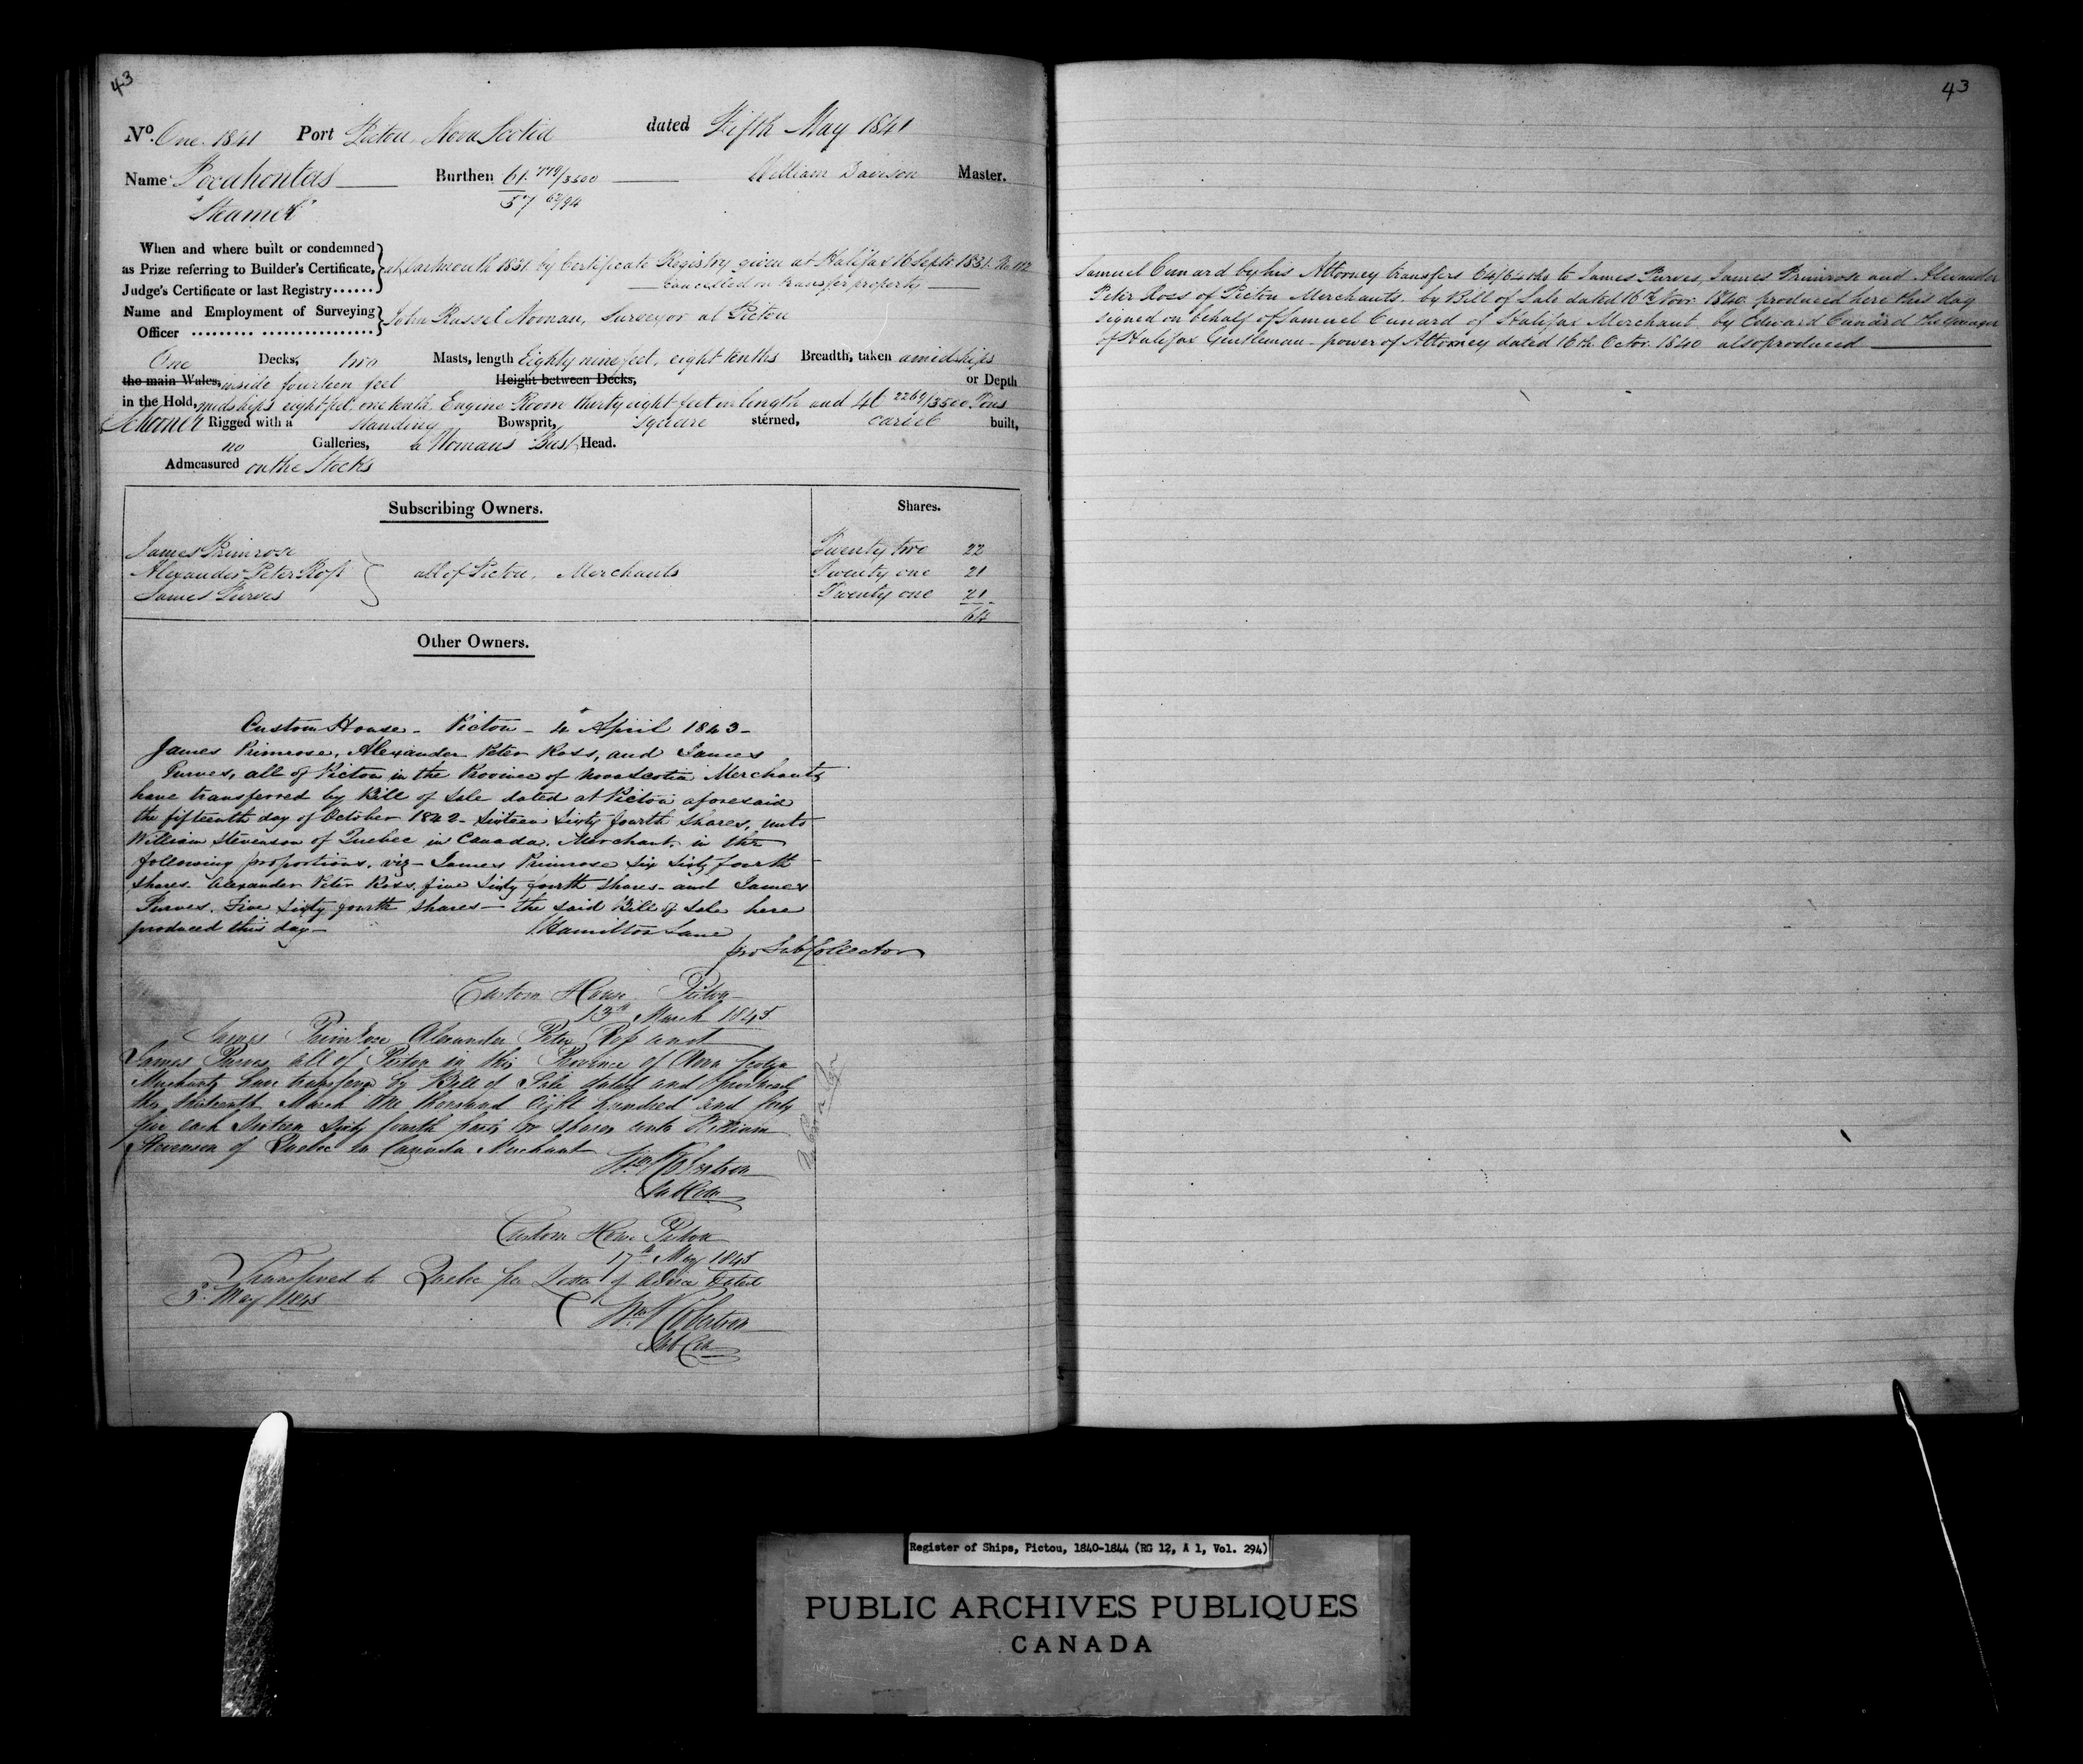 43
No. One 1841 Port Pictou, Nova Scotia dated Fifth May 1841
Name Pocahontas Burthen 61. 779/3500 William Davison Master.
"Steamer" 57 /94
When and where built or condemned
as Prize referring to Builder's Certificate, at Dartmouth 1831 by Certificate Registry given at Halifax 16 Septr 1831 No 112
Judge's Certificate or last Registry...... Cancelled on transfer property
Name and Employment of Surveying John Russel Noonan, Surveyor at Pictou
Officer ......... ................
One Decks, two Masts, length Eighty nine feet, eight tenths Breadth, taken amidships
the main Wales, inside fourteen feet Height between Decks, or Depth
in the Hold, midships eight feet, one tenth, Engine Room thirty eight feet in length and 41 2269/3500 Tons
Schooner Rigged with a standing Bowsprit, Square sterned, carvel built,
no Galleries, a Womans Bust Head.
Admeasured on the Stocks
Subscribing Owners. Shares.
James Primrose Twenty two 22
Alexander Peter Ross all of Pictou, Merchants Twenty one 21
James Purves Twenty one 21
64
Other Owners.
Custom House - Pictou - 4 April 1843 -
James Primrose, Alexander Peter Ross, and James
Purves, all of Pictou in the Province of Nova Scotia Merchants
have transferred by Bill of Sale dated at Pictou aforesaid
the fifteenth day of October 1842 - Sixteen Sixty fourth Shares, unto
William Stevenson of Quebec in Canada, Merchant, in the
following proportions, viz - James Primrose Six Sixty fourth
Shares. Alexander Peter Ross, five Sixty fourth Shares - and James
Purves, Five Sixty fourth Shares - the said Bill of Sale here
produced this day - Hamilton Lane
pro Sub Collector
Custom House Pictou
13th March 1845
James Primrose Alexander Peter Ross and
James Purves all of Pictou in the Province of Nova Scotia
Merchants have transferred by Bill of Sale dated and
the thirteenth March One thousand Eight hundred and forty
five each Sixteen Sixty fourth parts or shares unto William
Stevenson of Quebec in Canada Merchant
Wm Robertson
Sub Coll
Custom House Pictou
17th May 1845
Transferred to Quebec per Letter of advice dated
3d May 1845
Wm Robertson
Sub Coll
43
Samuel Cunard by his Attorney transfers 64/64ths to James Purves, James Primrose and Alexander
Peter Ross of Pictou Merchants - by Bill of Sale dated 16th Novr 1840 produced here this day
signed on behalf of Samuel Cunard of Halifax Merchant by Edward Cunard the younger
of Halifax Gentleman - power of Attorney dated 16th Octr 1840 also produced
Register of Ships, Pictou, 1840-1844 (RG 12, A 1, Vol. 294)
PUBLIC ARCHIVES PUBLIQUES
CANADA